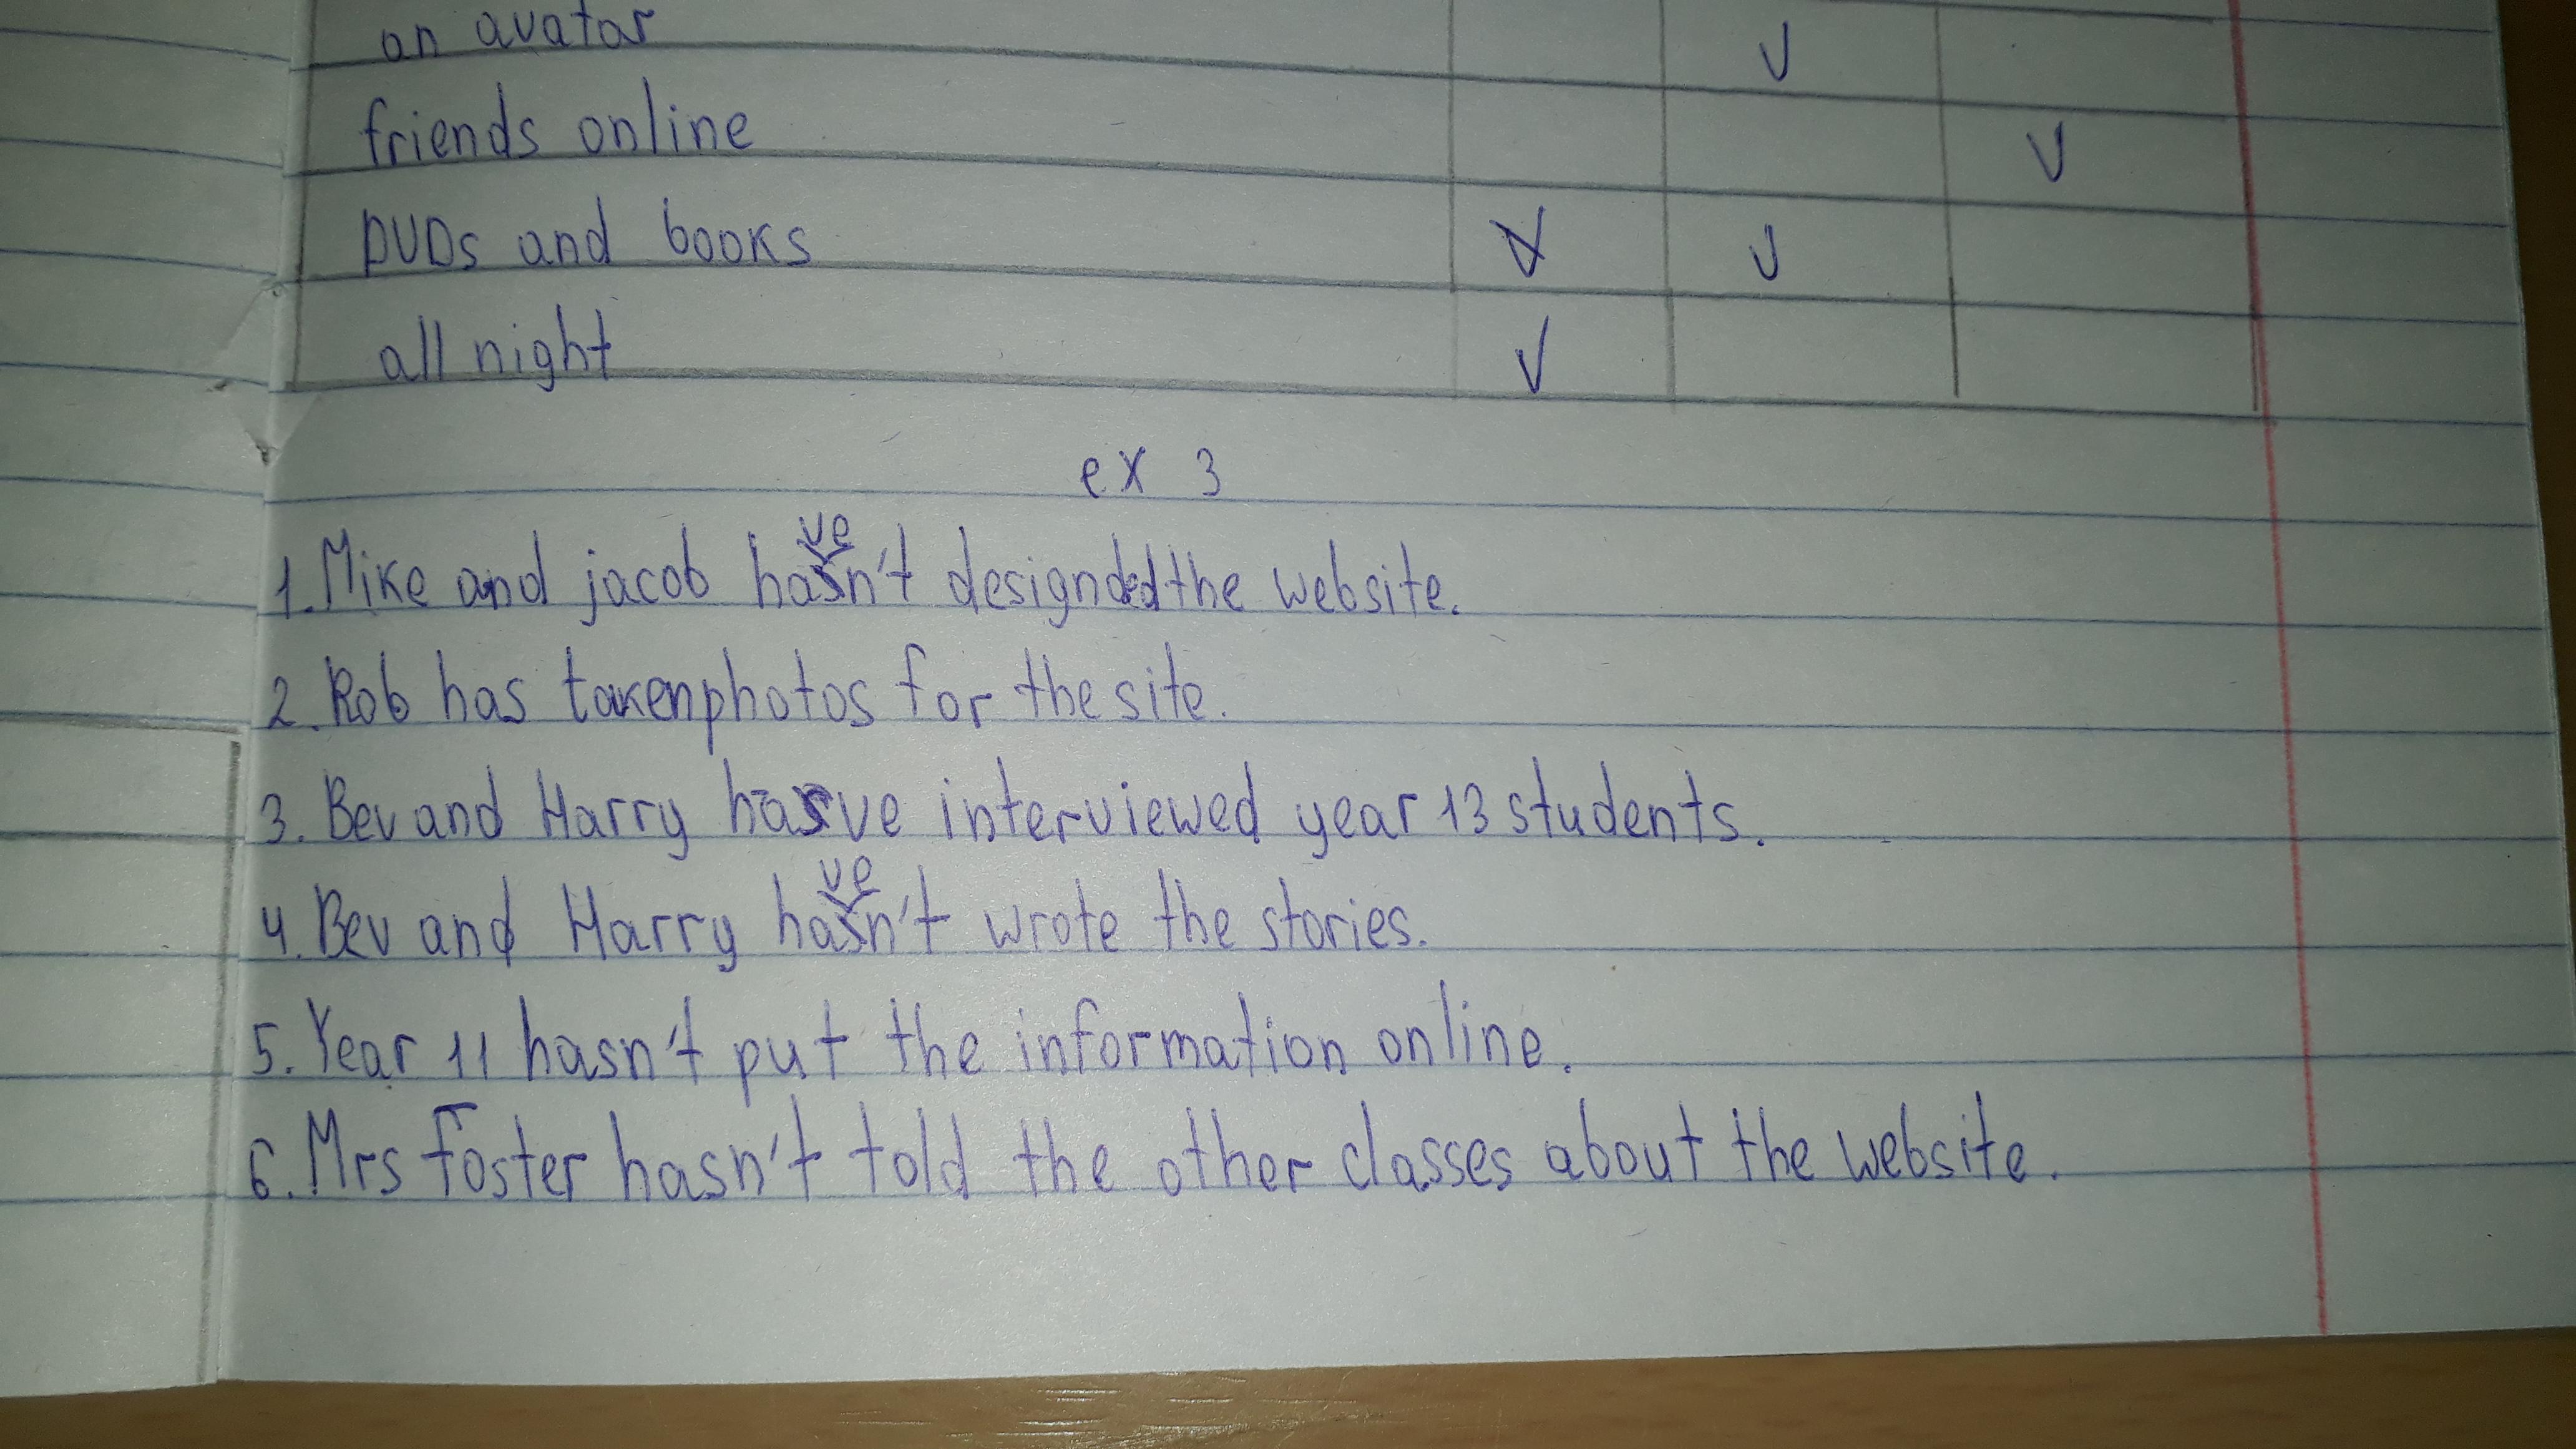 an avatar V
friends online V
DVDs and books V
all night V
ex 3
1. Mike and jacob haven't designded the website.
2. Rob has taken photos for the site.
3. Bev and Harry have interviewed year 13 students.
4. Bev and Harry haven't wrote the stories.
5. Year 11 hasn't put the information online.
6. Mrs Foster hasn't told the other classes about the website.